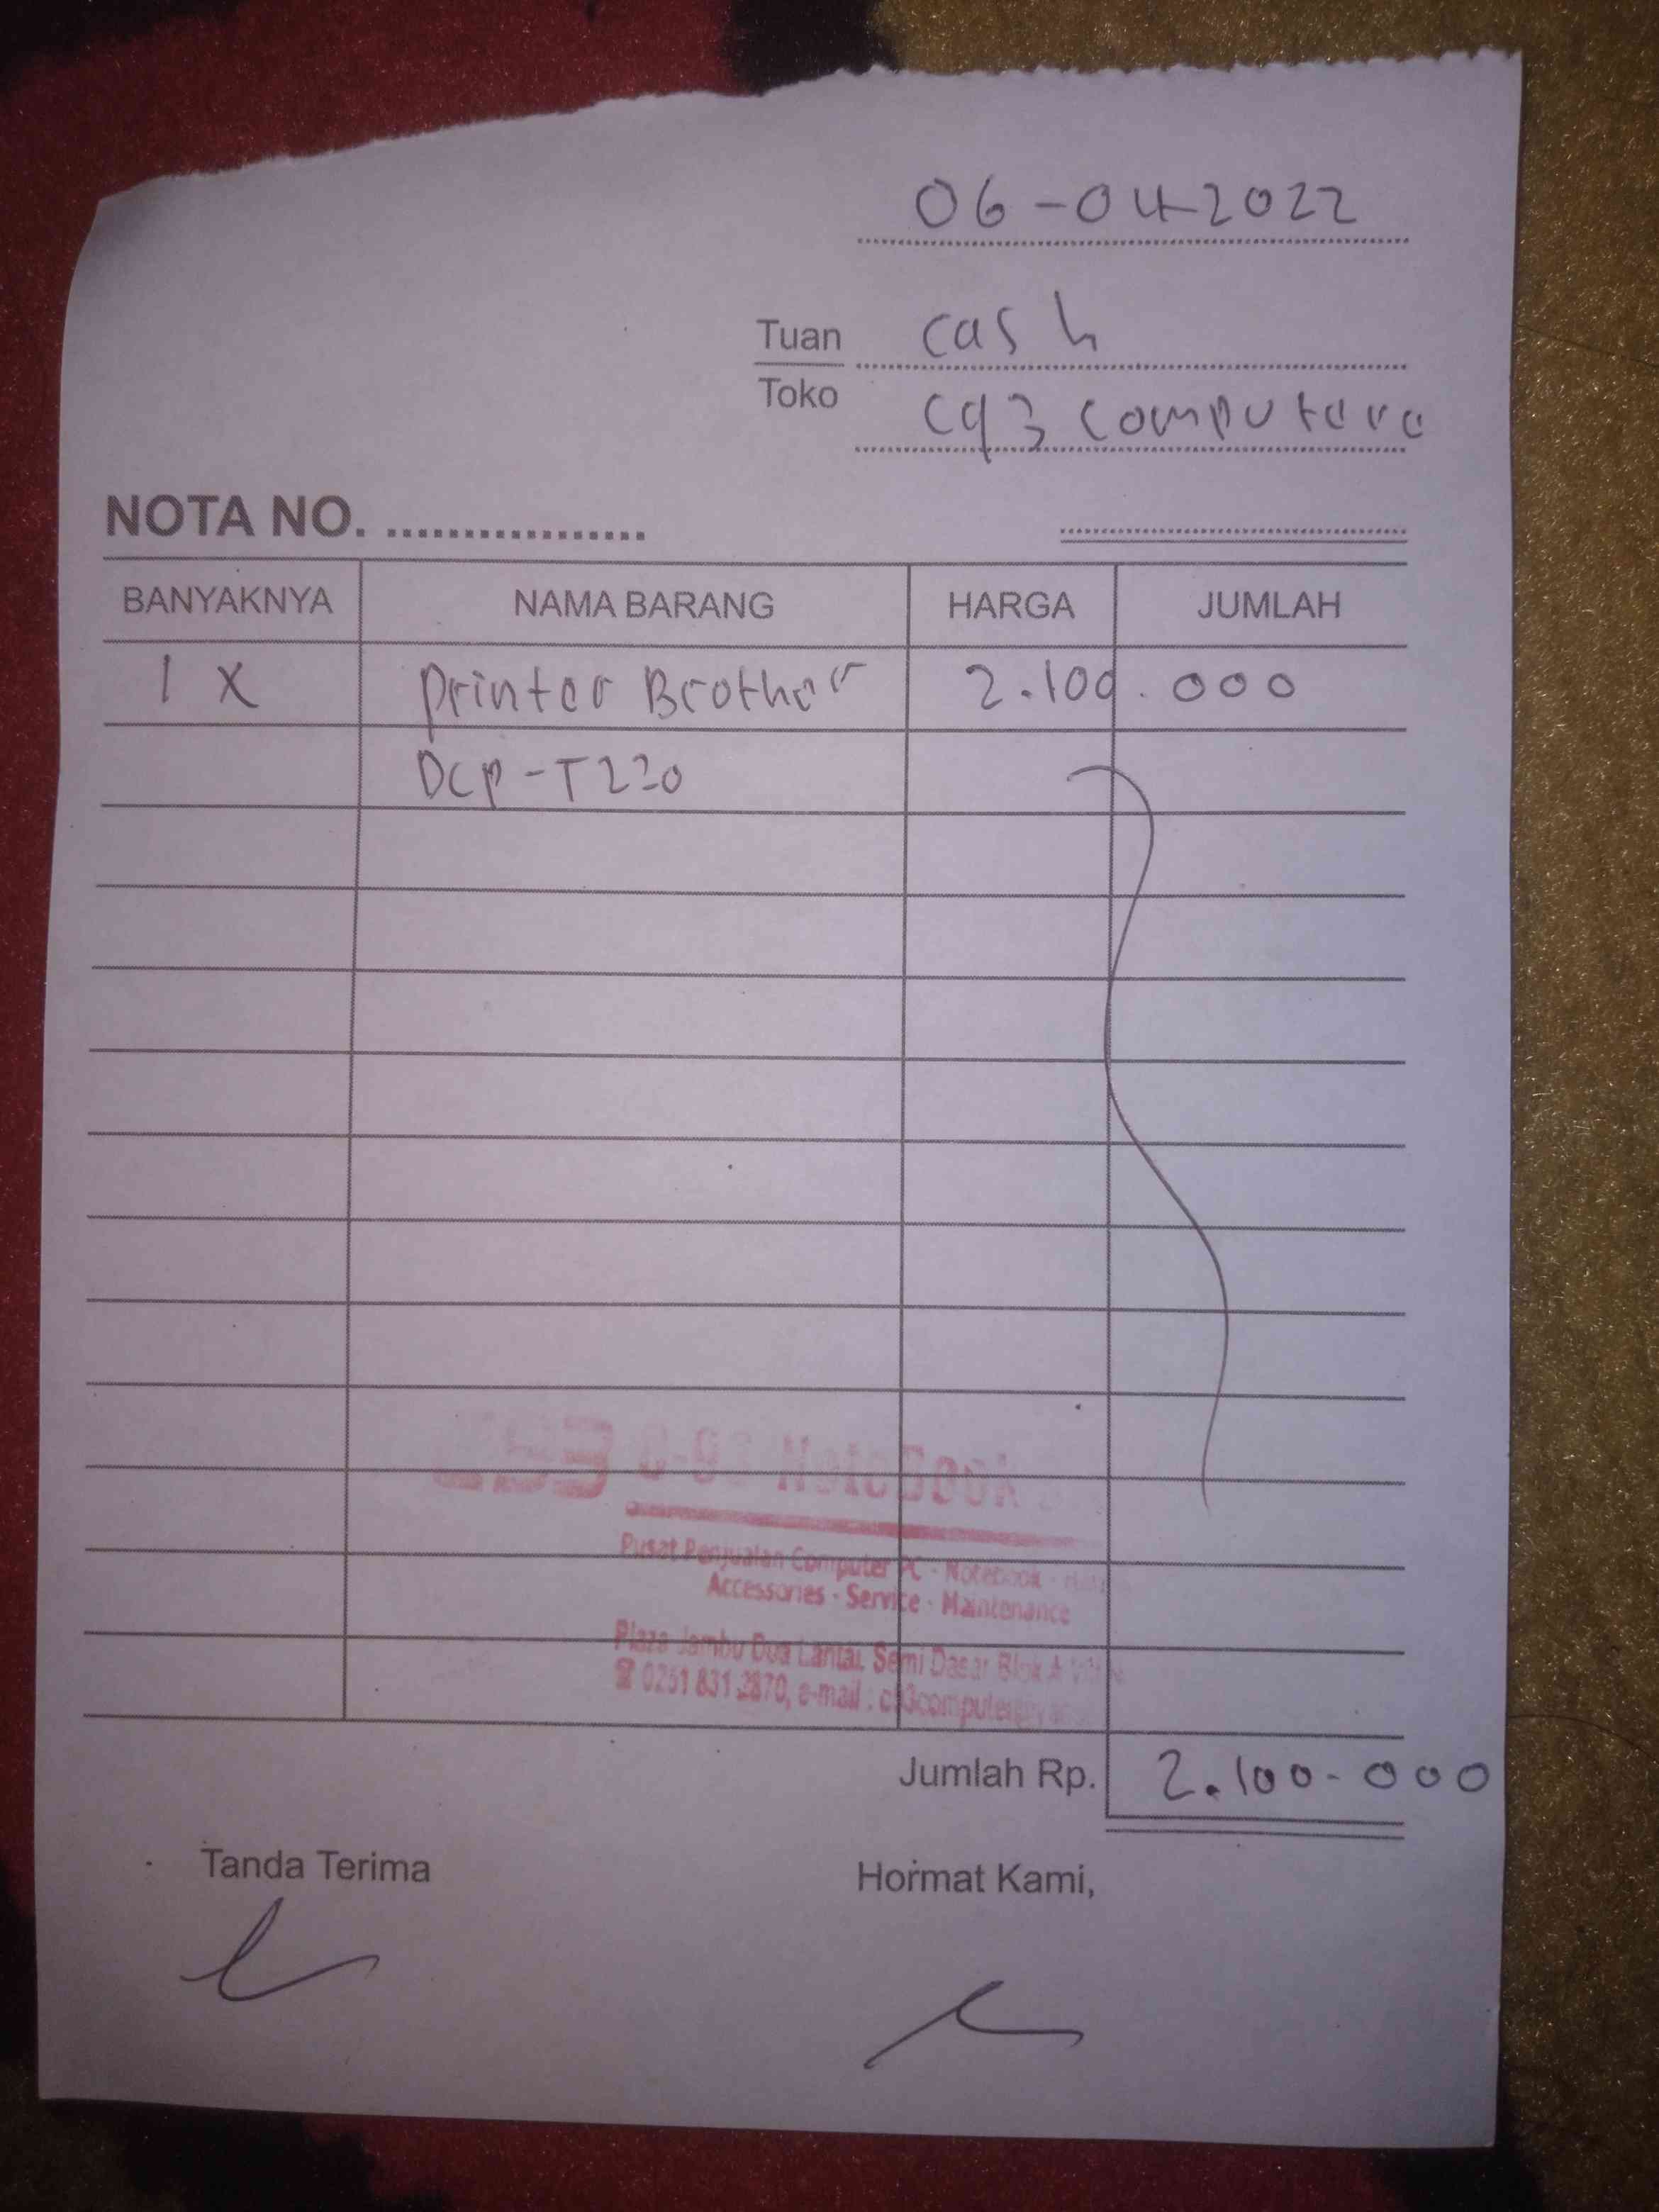 06-04-2022
Tuan cash
Toko
c93 computere
NOTA NO. .................
BANYAKNYA NAMA BARANG HARGA JUMLAH
1 X Printer Brother 2.100.000
DCP-T220
NoteBook
Pusat Penjualan Computer PC - Notebook -
Accessories - Service - Maintenance
Plaza Jambu Dua Lantai, Semi Dasar Blok A
0251 831 2870, e-mail :
Jumlah Rp. 2.100.000
Tanda Terima Hormat Kami,